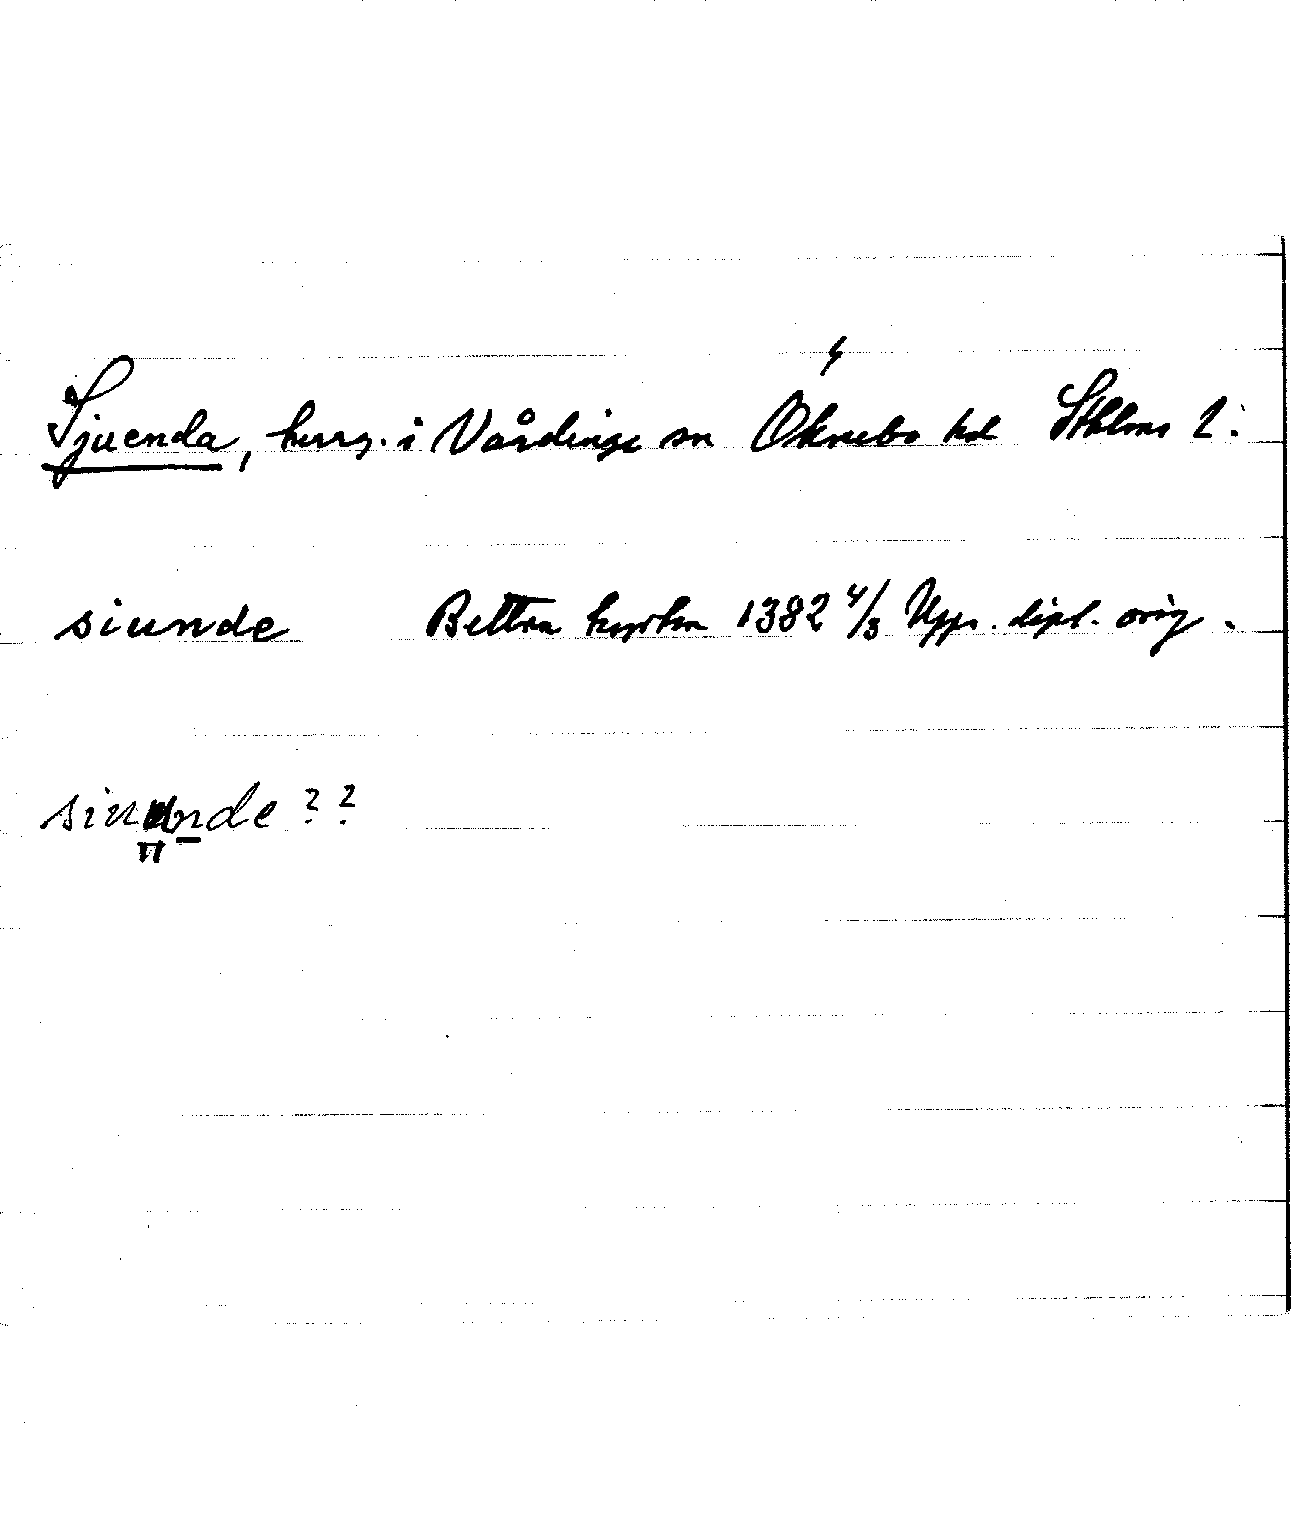 Sjuenda, herrg. i Vårdinge sn Öknebo hd Sthlms l.
siunde Bettna kyrka 1382 4/3 Upps. dipl. orig.
siuunde ??